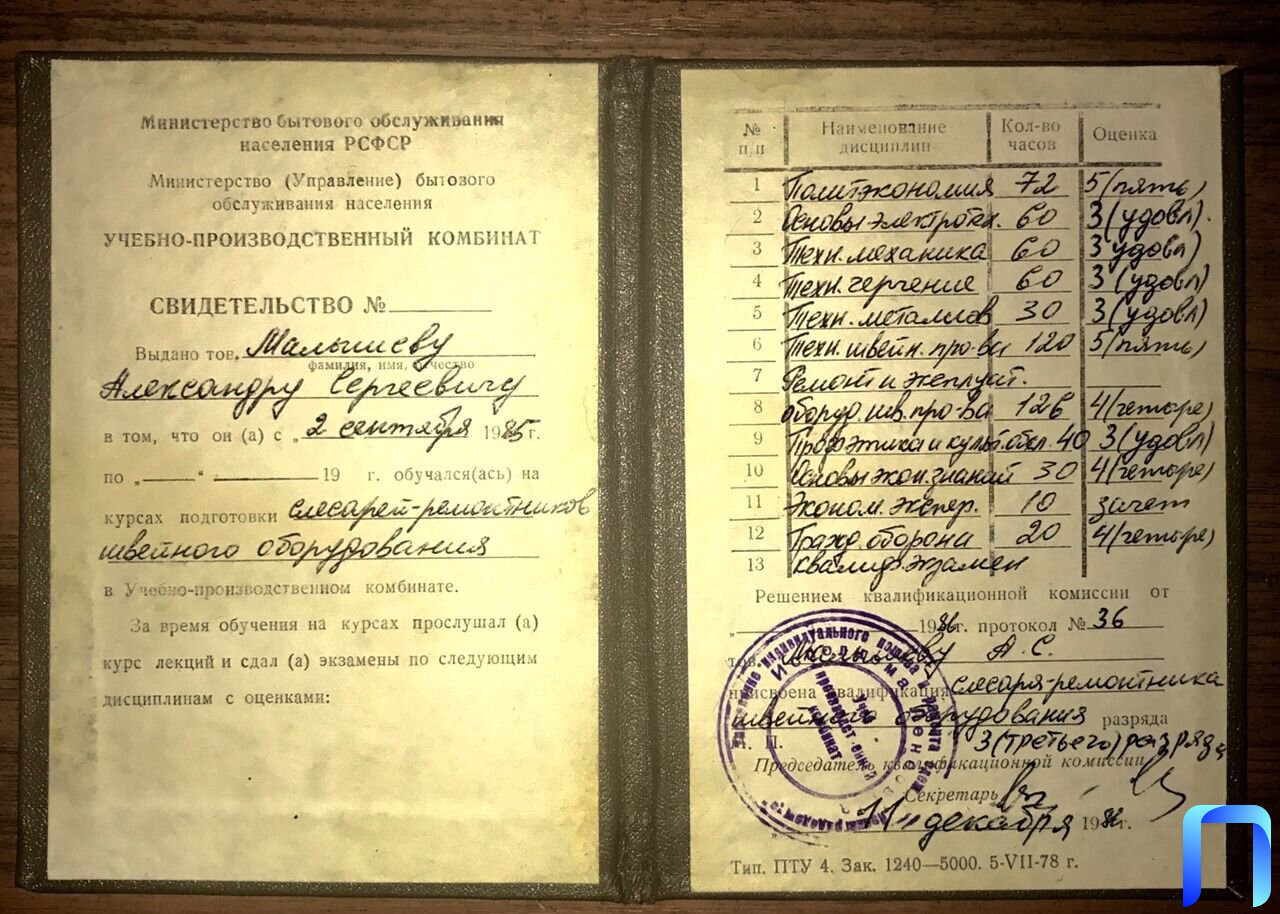 Министерство бытового обслуживания
населения РСФСР
Министерство (Управление) бытового
обслуживания населения
УЧЕБНО-ПРОИЗВОДСТВЕННЫЙ КОМБИНАТ
СВИДЕТЕЛЬСТВО №
Выдано тов. Малышеву
фамилия, имя, отчество
Александру Сергеевичу
в том, что он (а) с „2 сентября 1985г.
по „ “ 19 г. обучался(ась) на
курсах подготовки слесарей-ремонтников
швейного оборудования
в Учебно-производственном комбинате.
За время обучения на курсах прослушал (а)
курс лекций и сдал (а) экзамены по следующим
дисциплинам с оценками:
№ п/п Наименование дисциплин Кол-во часов Оценка
1 Политэкономия 72 5(пять)
2 Основы электротех. 60 3(удовл).
3 Техн. механика 60 3 удовл)
4 Техн. черчение 60 3(удовл)
5 Техн. металлов 30 3(удовл)
6 Техн. швейн. пр-ва 120 5(пять)
7 Ремонт и эксплуат.
8 оборуд. шв. пр-ва 126 4(четыре)
9 Проф этика и культ. обсл. 40 3(удовл)
10 Основы экон. знаний 30 4(четыре)
11 Эконом. экспер. 10 зачет
12 Гражд. оборона 20 4(четыре)
13 квалиф. экзамен
Решением квалификационной комиссии от
„ 1986г. протокол № 36
тов. Малышеву А. С.
присвоена квалификация слесаря-ремонтника
швейного оборудования разряда
М. П. 3(третьего) разряда
Председатель квалификационной комиссии
Секретарь
„11" декабря 1986г.
Тип. ПТУ 4. Зак. 1240—5000. 5-VII-78 г.